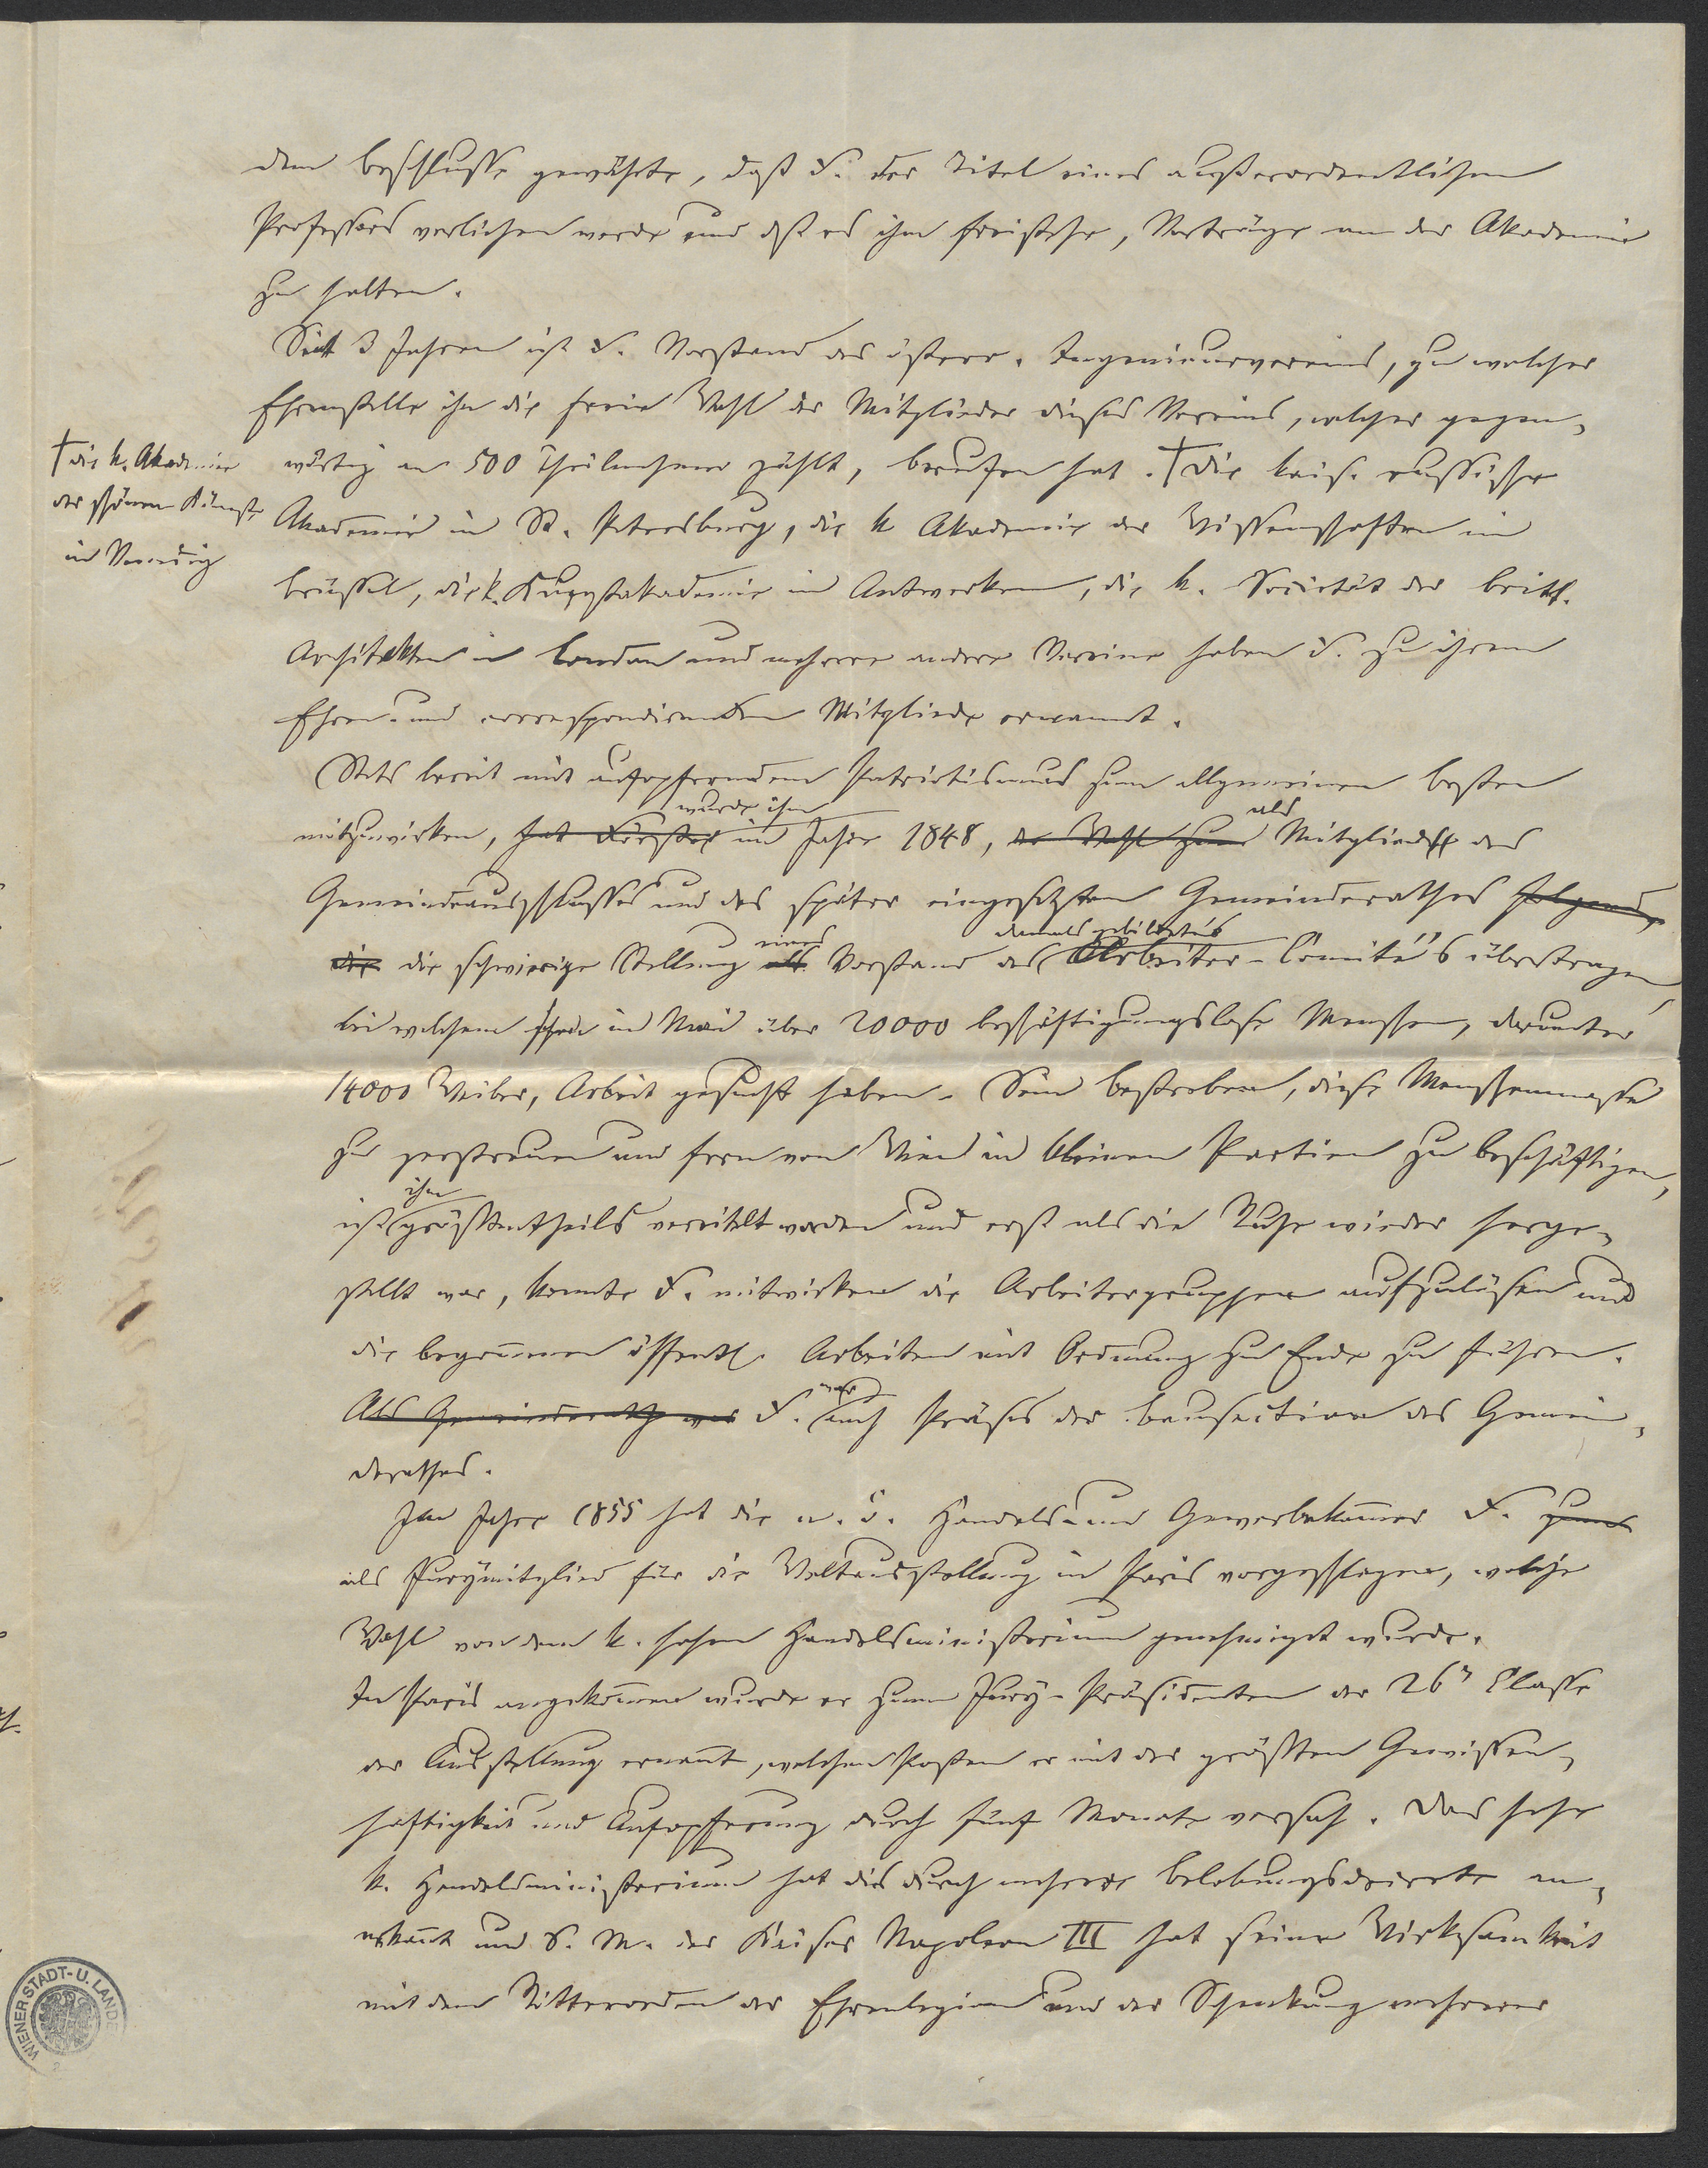 dem Beschlusse gewährte, daß F. der Titel eines außerordentlichen
Professors verliehen werde und daß es ihm freistehe, Vorträge an der Akademie
zu halten.
Seit 3 Jahren ist F. Vorstand des österr. Ingenieurvereins, zu welcher
Ehrenstelle ihn die freie Wahl der Mitglieder dieses Vereins, welcher gegen-
wärtig an 500 Theilnehmer zählt, berufen hat. † Die kais. russische
† die k. Akademie
der schönen Künste
in Venedig
Akademie in St. Petersburg, die k Akademie der Wissenschaften in
Brüssel, die k. Kunstakademie in Antwerken, die k. Societät der britt.
Architekten in London und mehrere andere Vereine haben F. zu ihrem
Ehren- und correspondirenden Mitgliede ernannt.
Stets bereit mit aufopferndem Patriotismus zum allgemeinen Besten
wurde ihm als
mitzuwirken, hat Förster im Jahre 1848, der Wahl zum Mitglied des
Gemeindeausschusses und des später eingesetzten Gemeinderathes folgend,
eines damals gebildetes
die die schwierige Stellung als Vorstand des Arbeiter-Comité's übertragen,
bei welchem schon im Mai über 20000 beschäftigungslose Menschen, darunter
14000 Weiber, Arbeit gesucht haben. Sein Bestreben, diese Menschenmasse
zu zerstreuen und fern von Wien in kleinen Partien zu beschäftigen,
ihm
ist größtentheils vereitelt worden und erst als die Ruhe wieder herge-
stellt war, konnte F. mitwirken die Arbeitergruppen aufzulösen und
die begonnenen öffentl. Arbeiten mit Ordnung zu Ende zu führen.
war
Als Gemeinderath war F. auch Präses der Bausection des Gemein-
derathes.
Im Jahre 1855 hat die n. ö. Handels- und Gewerbekammer F. zum
als Jurymitglied für die Weltausstellung in Paris vorgeschlagen, welche
Wahl von dem k. hohen Handelsministerium genehmigt wurde.
In Paris angekommen wurde er zum Jury-Präsidenten der 26n Classe
der Ausstellung ernannt, welchen Posten er mit der größten Gewissen-
haftigkeit und Aufopferung durch fünf Monate versah. Das hohe
k. Handelsministerium hat dies durch mehrere Belobungsdecrete an-
erkannt und S. M. der Kaiser Napoleon III hat seine Wirksamkeit
mit dem Ritterorden der Ehrenlegion und der Schenkung mehrerer
WIENER STADT- U. LANDE